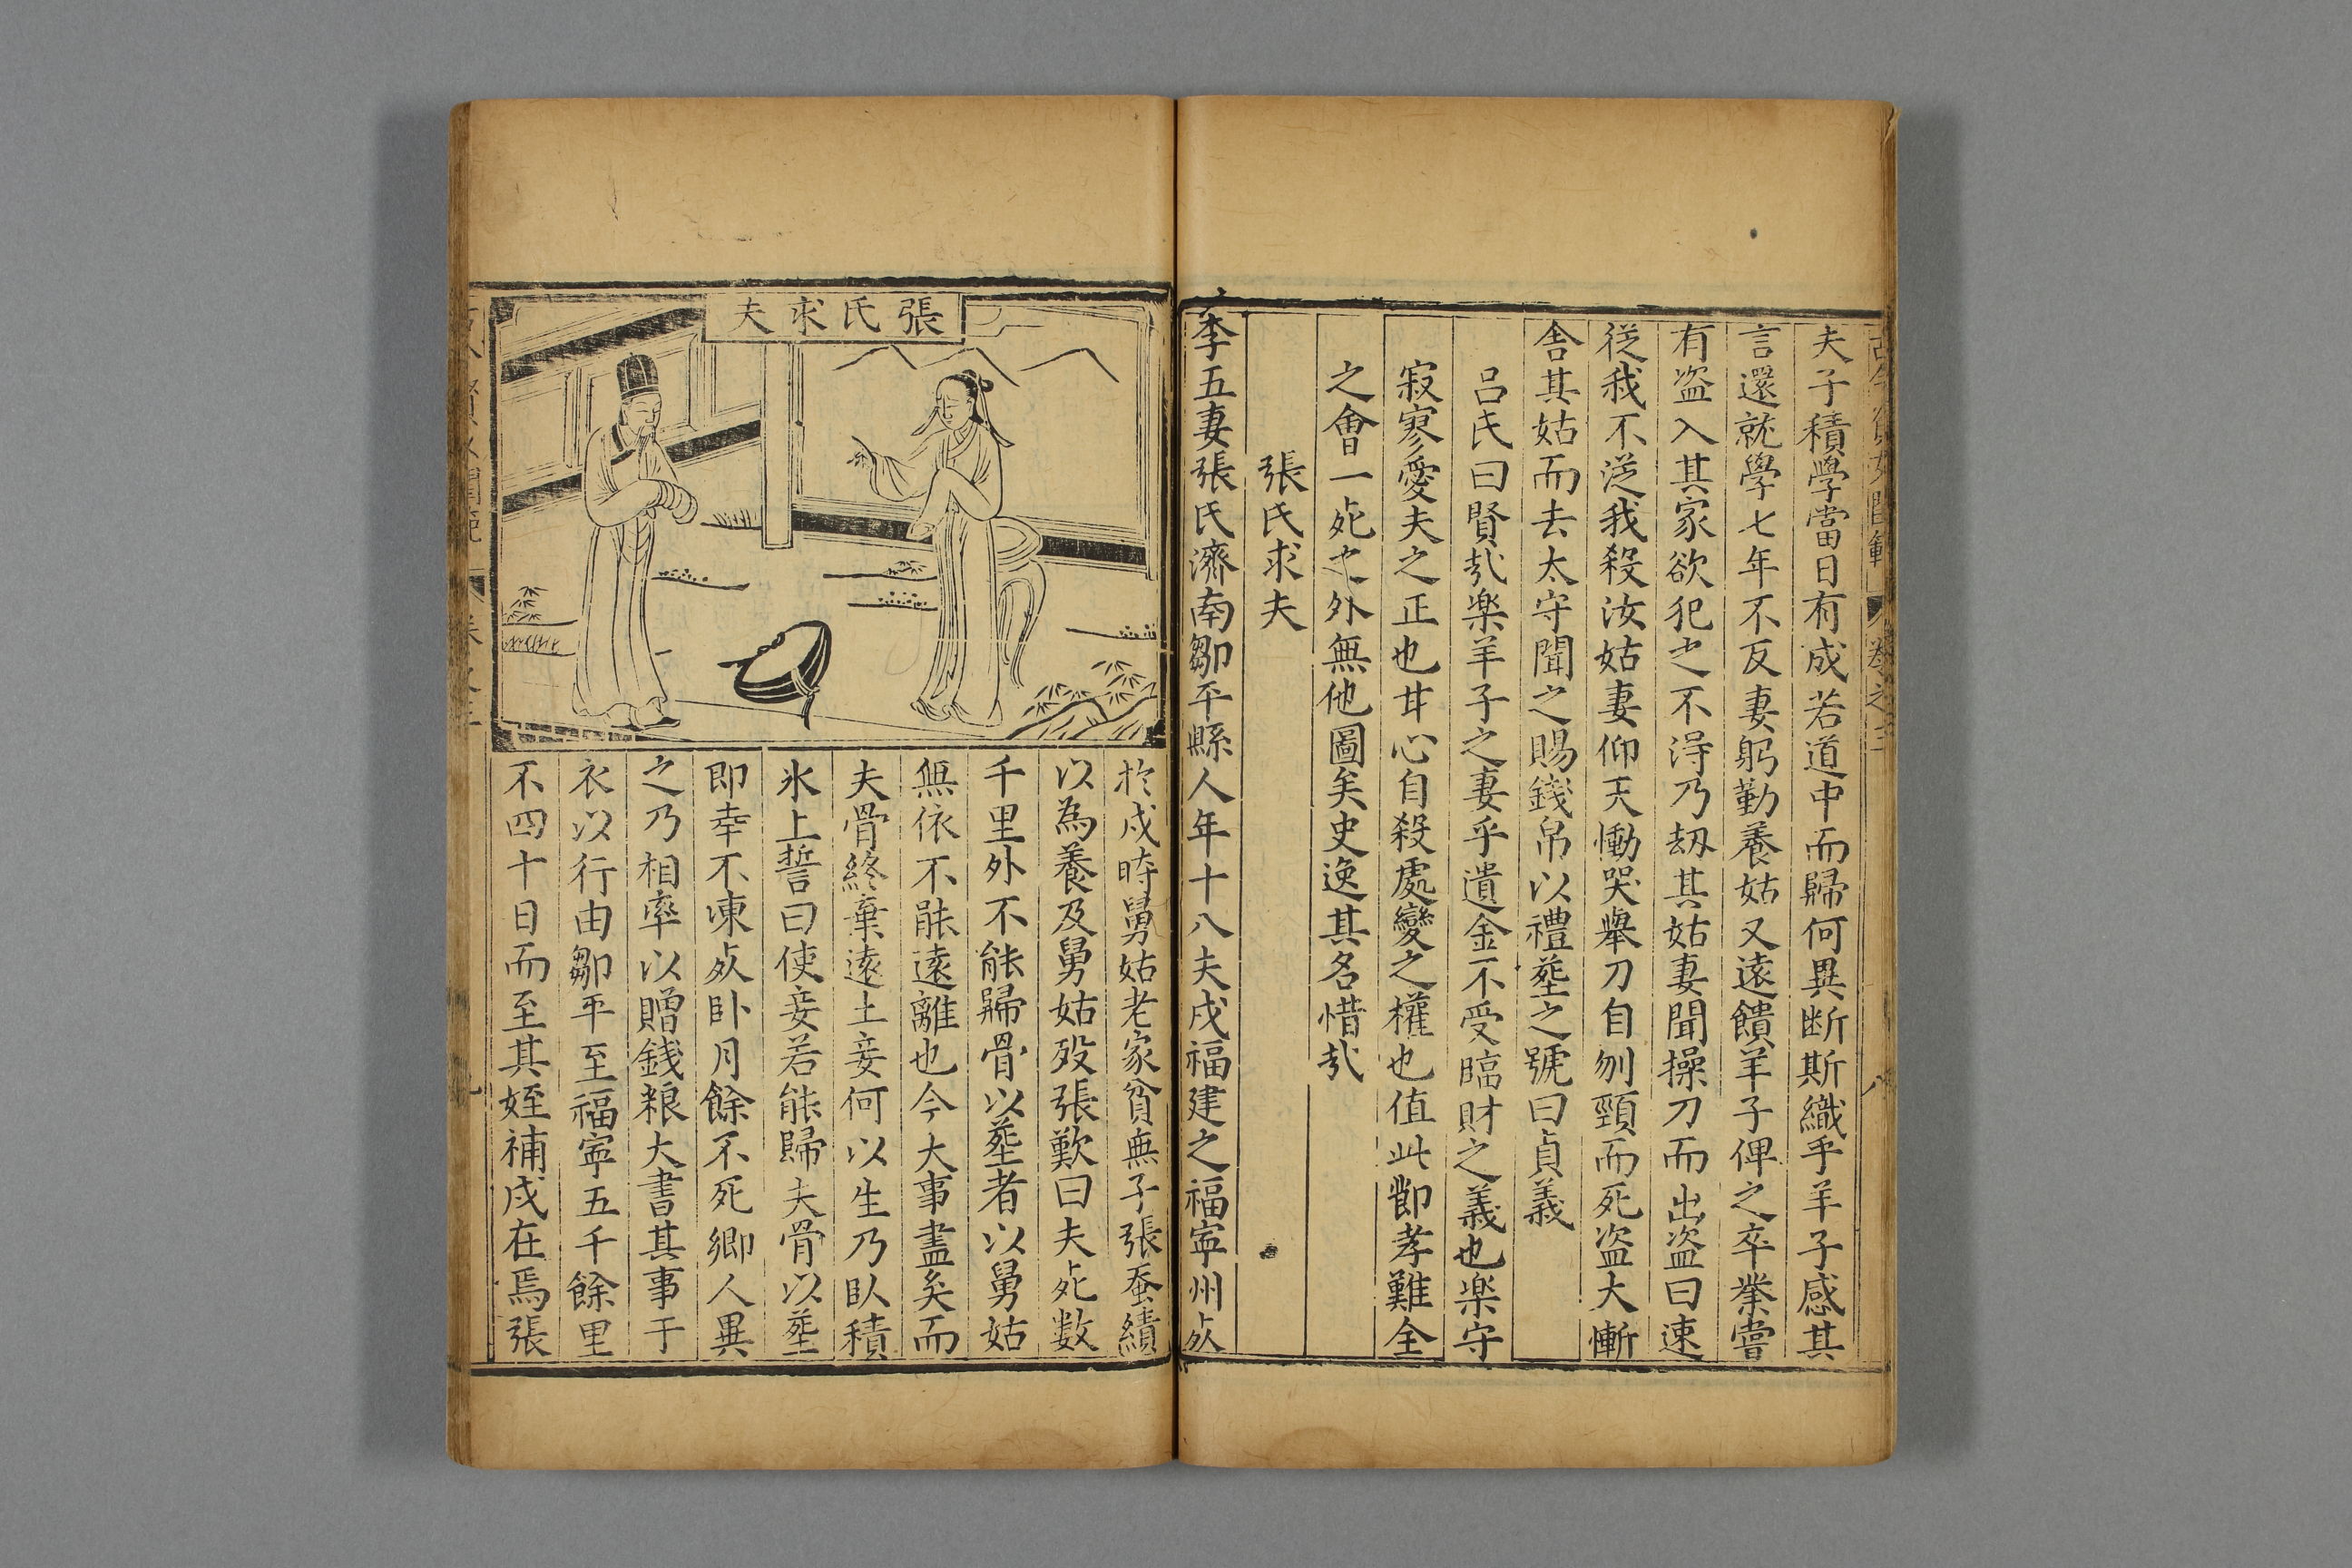 夫子積學當日有成若道中而歸何異斷斯織乎羊子感其
言還就學七年不反妻躬勤養姑又遠饋羊子俾之卒業嘗
有盗入其家欲犯之不得乃刼其姑妻聞操刀而出盗曰速
從我不從我殺汝姑妻仰天慟哭舉刀自刎頸而死盗大慚
舍其姑而去太守聞之賜錢帛以禮塟之號曰貞義
呂氏曰賢哉樂羊子之妻乎遺金不受臨財之義也樂守
寂寥愛夫之正也甘心自殺處變之權也值此節孝難全
之會一死之外無他圖矣史逸其名惜哉
張氏求夫
李五妻張氏濟南鄒平縣人年十八夫戍福建之福寧州死
張氏求夫
於戍時舅姑老家貧無子張蚕績
以為養及舅姑歿張歎曰夫死数
千里外不能歸骨以塟者以舅姑
無依不能遠離也今大事盡矣而
夫骨終棄遠土妾何以生乃臥積
氷上誓曰使妾若能歸夫骨以塟
即幸不凍死卧月餘不死鄉人異
之乃相率以贈銭粮大書其事于
衣以行由鄒平至福寧五千餘里
不四十日而至其姪補戍在焉張